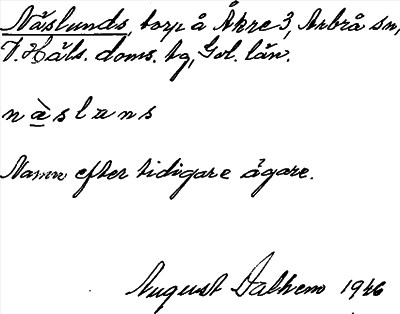 Näslunds, torp å Åkre 3, Arbrå sn,
V. Häls. doms. tg, Gvl. län.
n ä̀ s l u n s
Namn efter tidigare ägare.
August Dalhem 1946